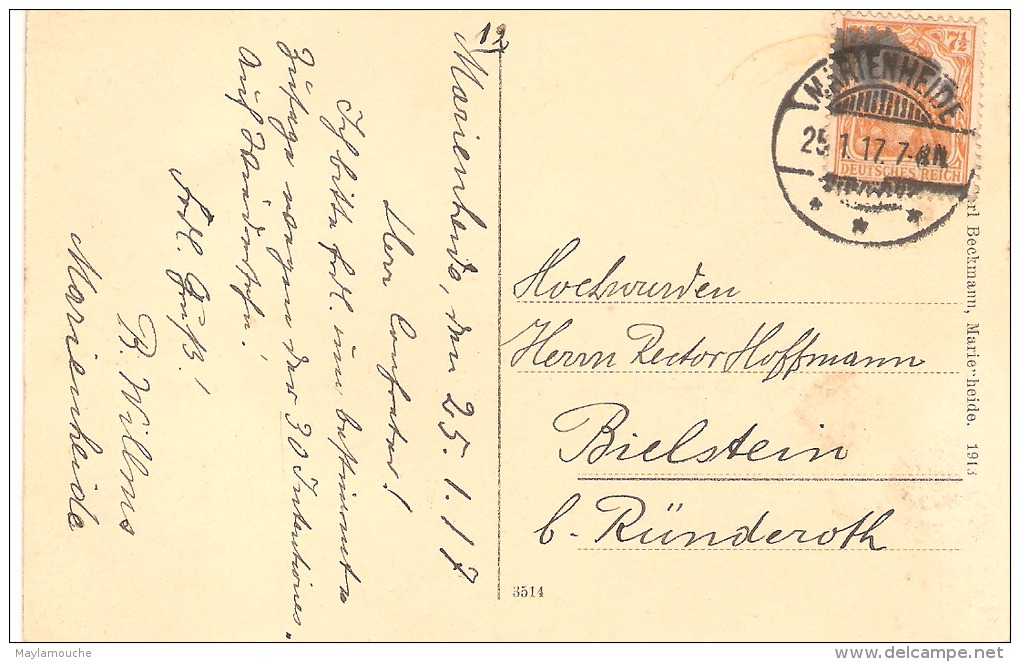 12
Marienheide, den 25.1.17
Herr Confrater!
Ich bitte frdl. um bestimmte
Zusage wegen der 30 Intentiones.
Auf Wiedersehn!
Frdl. Gruß!
B. Wilms
Marienheide
7½
MARIENHEIDE
25.1.17.7-8N.
DEUTSCHES REICH
Hochwürden
Herrn Rector Hoffmann
Bielstein
b. Ründeroth
Carl Beckmann, Marienheide. 1913
3514
Maylamouche
www.delcampe.net